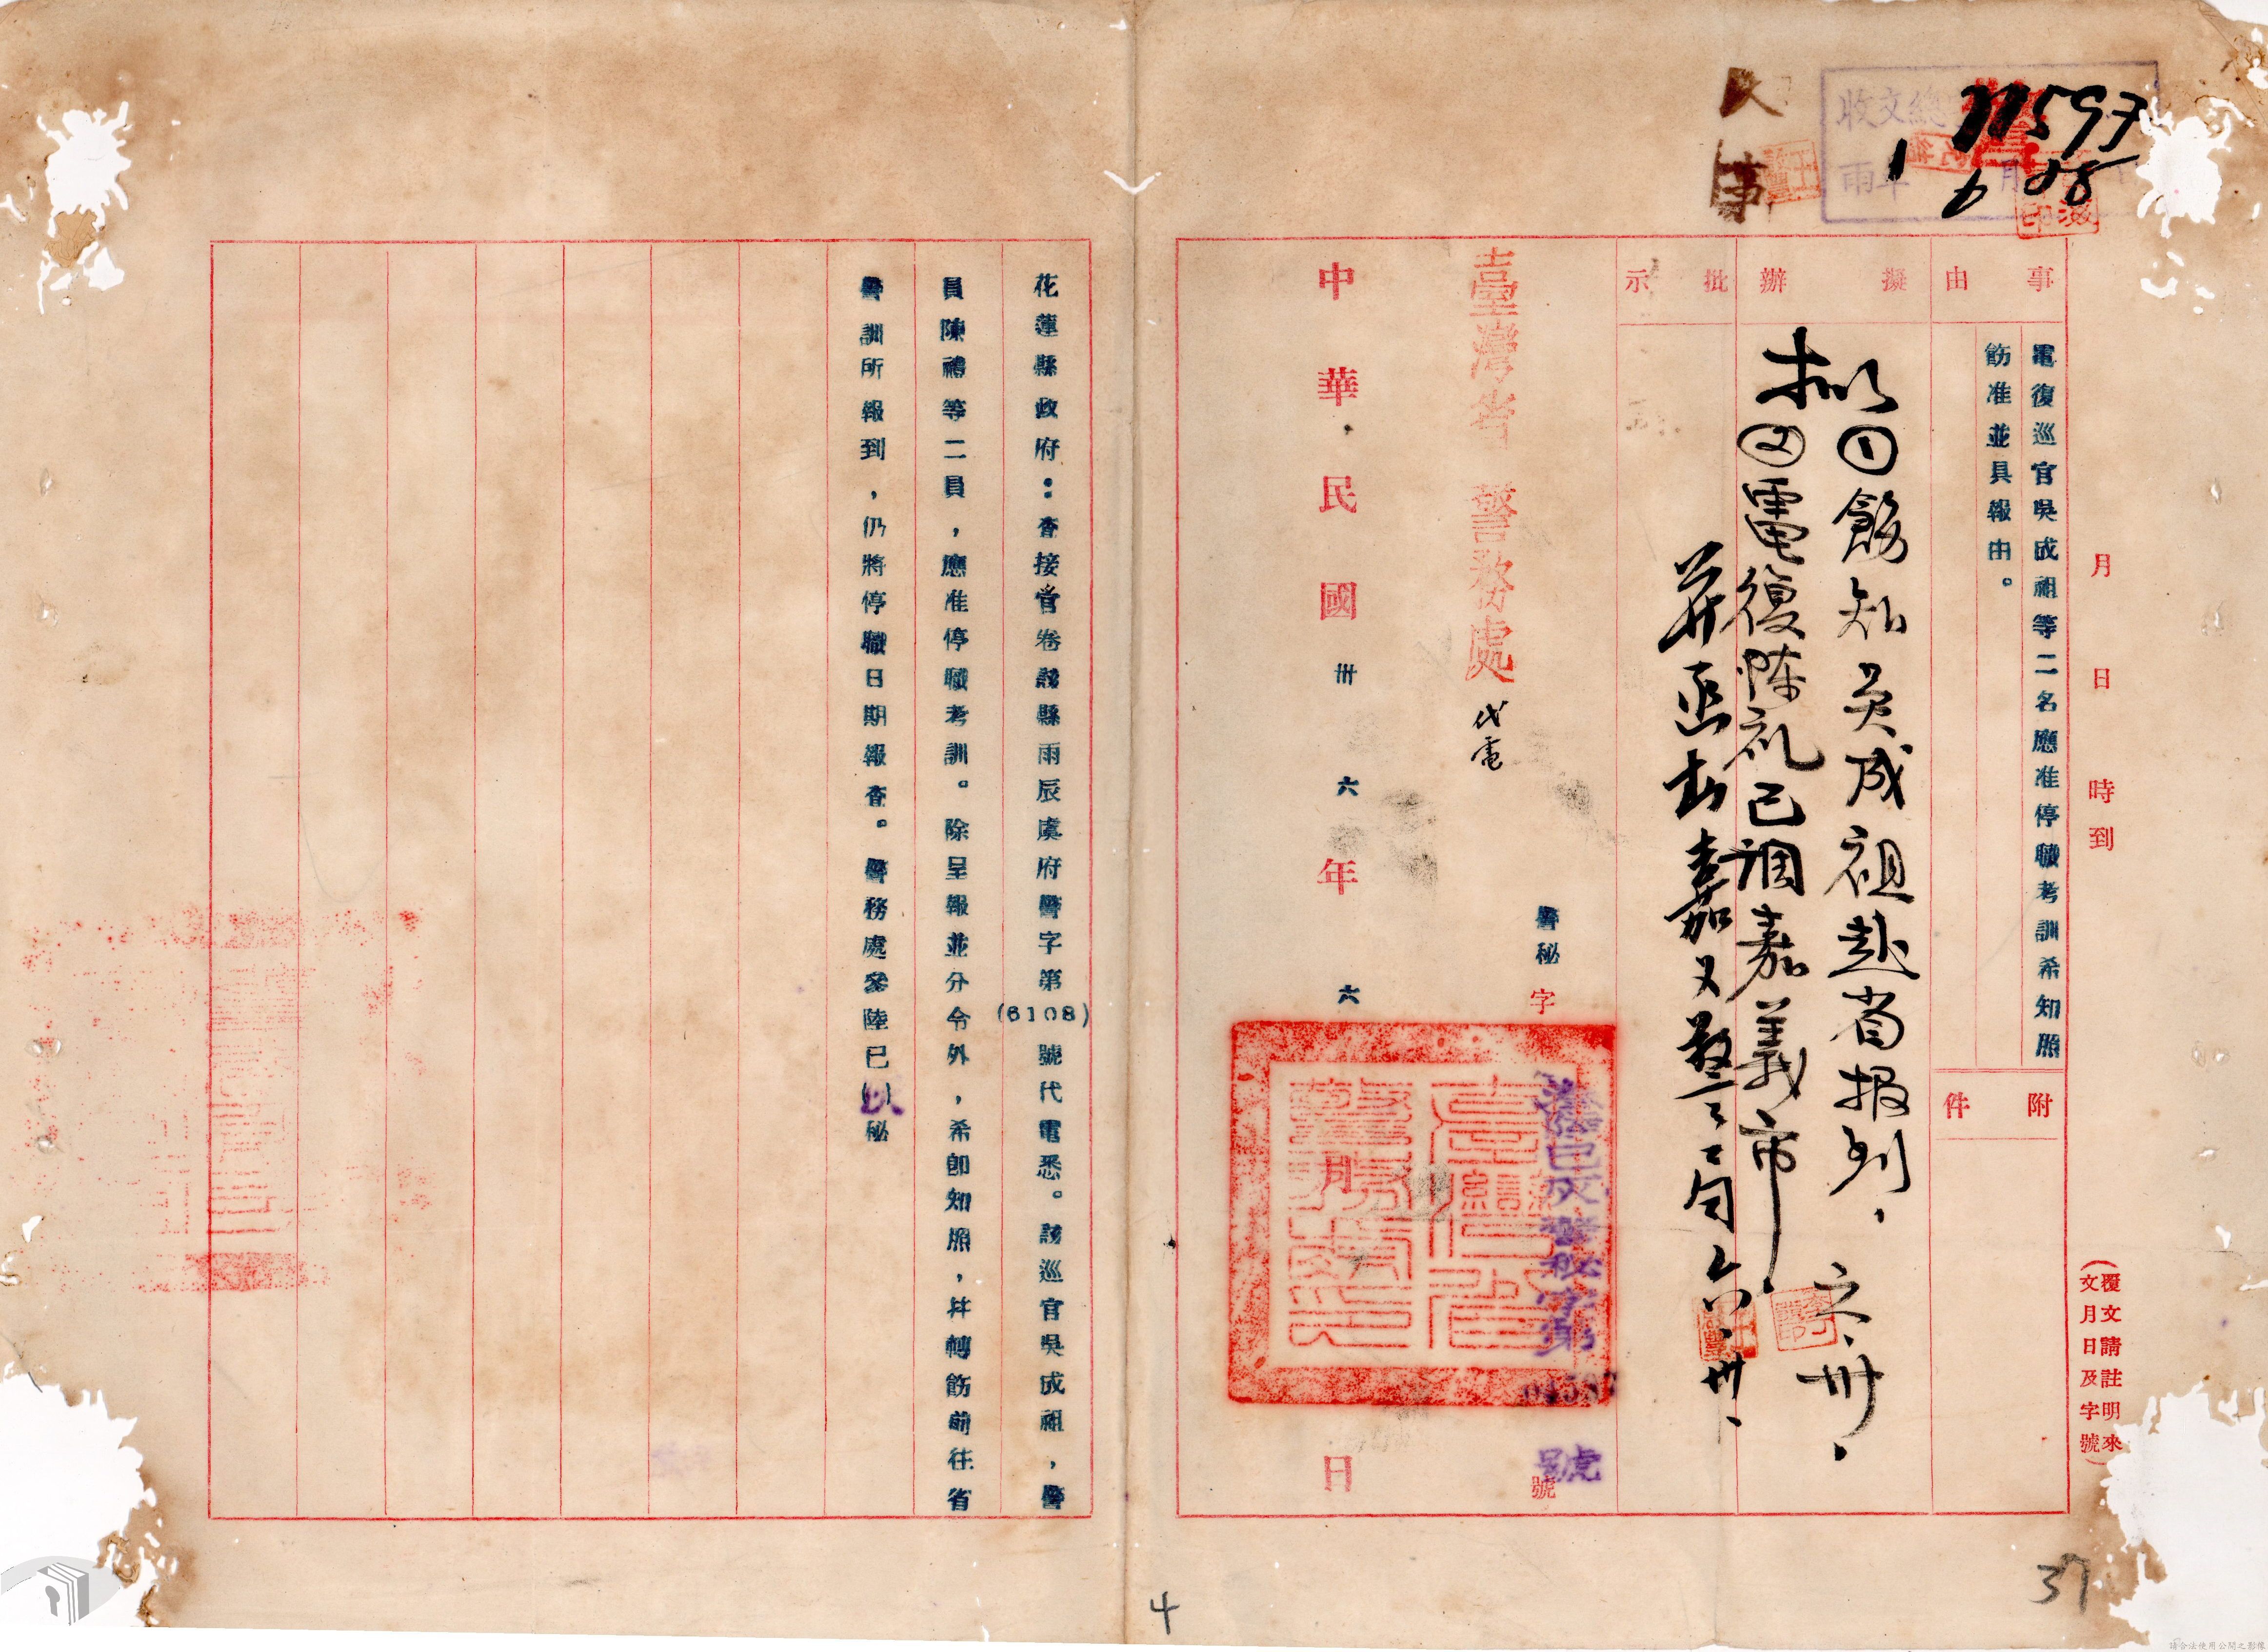 人事
收文總
11597
年 1 月 6 28
月 日 時到
(覆文請註明來
文月日及字號)
事由
電復巡官吳成祖等二名應准停職考訓希知照
飭准並具報由。
附件
擬辦
拟①飭知吳成祖赴省报到。六.卅.
②電復陈礼已調嘉義市
并函 嘉义警局 六.卅.
批示
警秘字
警秘字第
號
號
臺灣省警務處 代電
中華民國卅六年六月 日
花蓮縣政府：查接官卷該縣雨辰虞府警字第(6108)號代電悉。該巡官吳成祖，警
員陳禮等二員，應准停職考訓。除呈報並分令外，希即知照，并轉飭前往省
警訓所報到，仍將停職日期報查。警務處參陸巳( )秘
4
37
請合法使用公開之影像